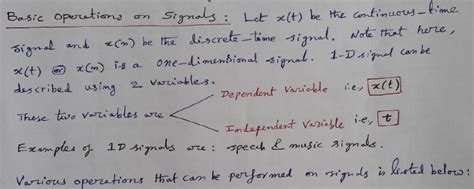 Basic Operations on Signals : Let x(t) be the continuous-time
signal and x(n) be the discrete-time signal. Note that here,
x(t) or x(n) is a one-dimentional signal. 1-D signal can be
described using 2 variables.
Dependent Variable i.e, x(t)
These two variables are
Independent Variable i.e, t
Examples of 1D signals are : speech & music signals.
Various operations that can be performed on signals is listed below: